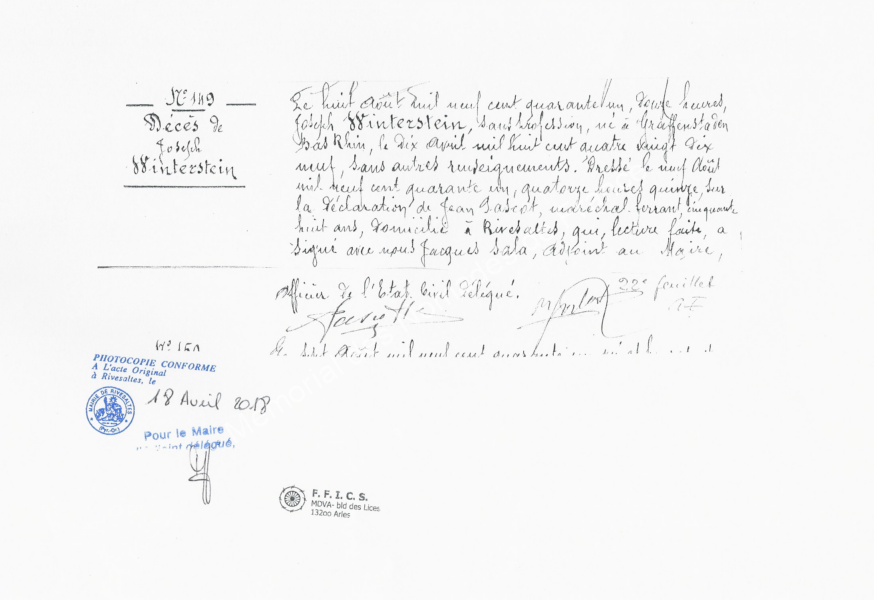 N° 149
Décès de
Joseph
Winterstein
Le huit Août mil neuf cent quarante un, douze heures,
Joseph Winterstein, sans profession, né à Graffenstaden
Bas Rhin, le dix Avril mil huit cent quatre vingt dix
neuf, sans autres renseignements. Dressé le neuf Août
mil neuf cent quarante un, quatorze heures quinze, sur
la déclaration de Jean Pascot, maréchal ferrant, cinquante
huit ans, domicilié à Rivesaltes, qui, lecture faite, a
signé avec nous Jacques Sala, Adjoint au Maire,
Officier de l'Etat Civil délégué.
22e feuillet
N° 150
Le sept Août mil neuf cent quarante un
PHOTOCOPIE CONFORME
A L'acte Original
à Rivesaltes, le
18 Avril 2018
MAIRIE DE RIVESALTES
(Pyr.-Or.)
Pour le Maire
délégué,
F. F. I. C. S.
MDVA- bld des Lices
13200 Arles